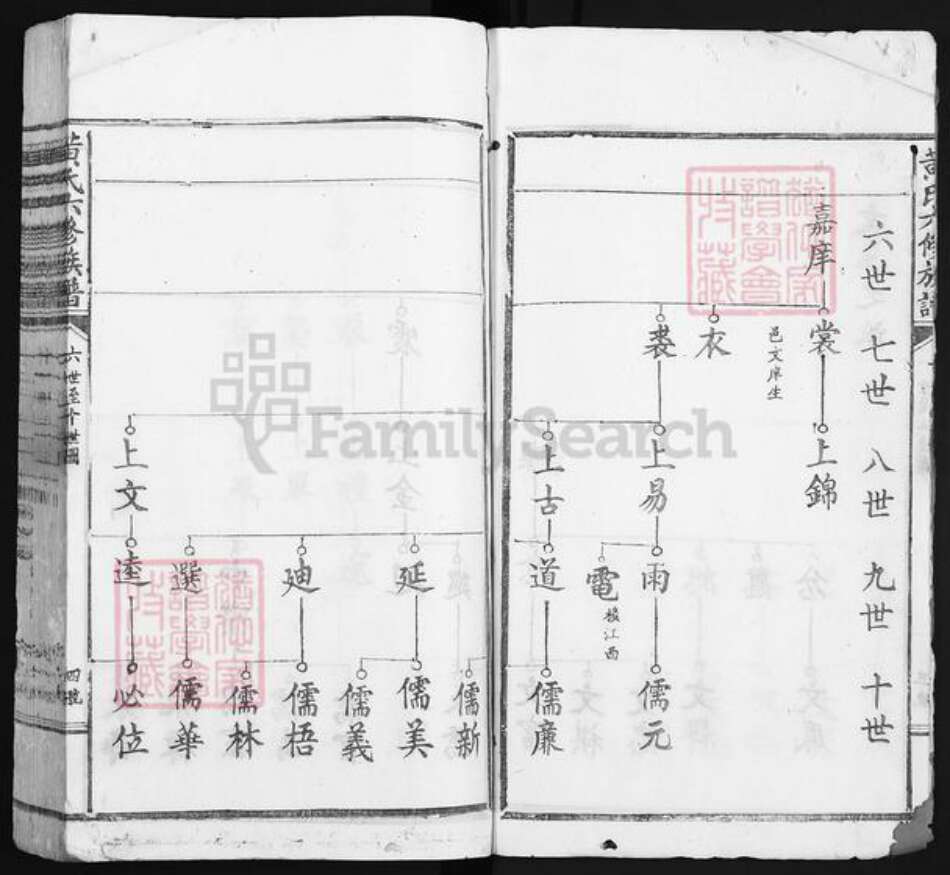 六世 七世 八世 九世 十世
嘉庠
裳
邑文庠生
衣
裘
上錦
上易
上古
雨
電
移江西
道
儒元
儒廉
上文
延
迪
選
遠
儒新
儒美
儒義
儒梧
儒林
儒華
必位
黃氏六修族譜
六世至十世圖
四號
FamilySearch